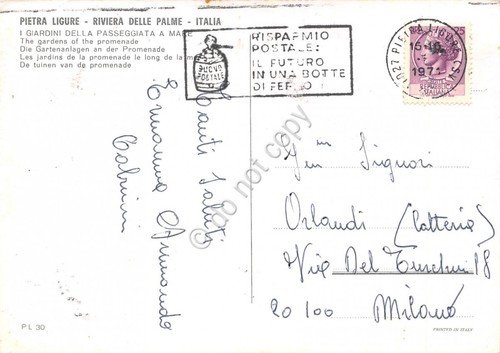 PIETRA LIGURE - RIVIERA DELLE PALME - ITALIA
I GIARDINI DELLA PASSEGGIATA A MARE
The gardens of the promenade
Die Gartenanlagen an der Promenade
Les jardins de la promenade le long de la mer
De tuinen van de promenade
BUONO
POSTALE
RISPARMIO
POSTALE:
IL FUTURO
IN UNA BOTTE
DI FERRO
17027 PIETRA LIGURE (SV)
Tanti Saluti
Armando
Gnm Signori
Orlandi (Latteria)
Via Del Turchino 18
20100 Milano
do not copy
PL 30
PRINTED IN ITALY